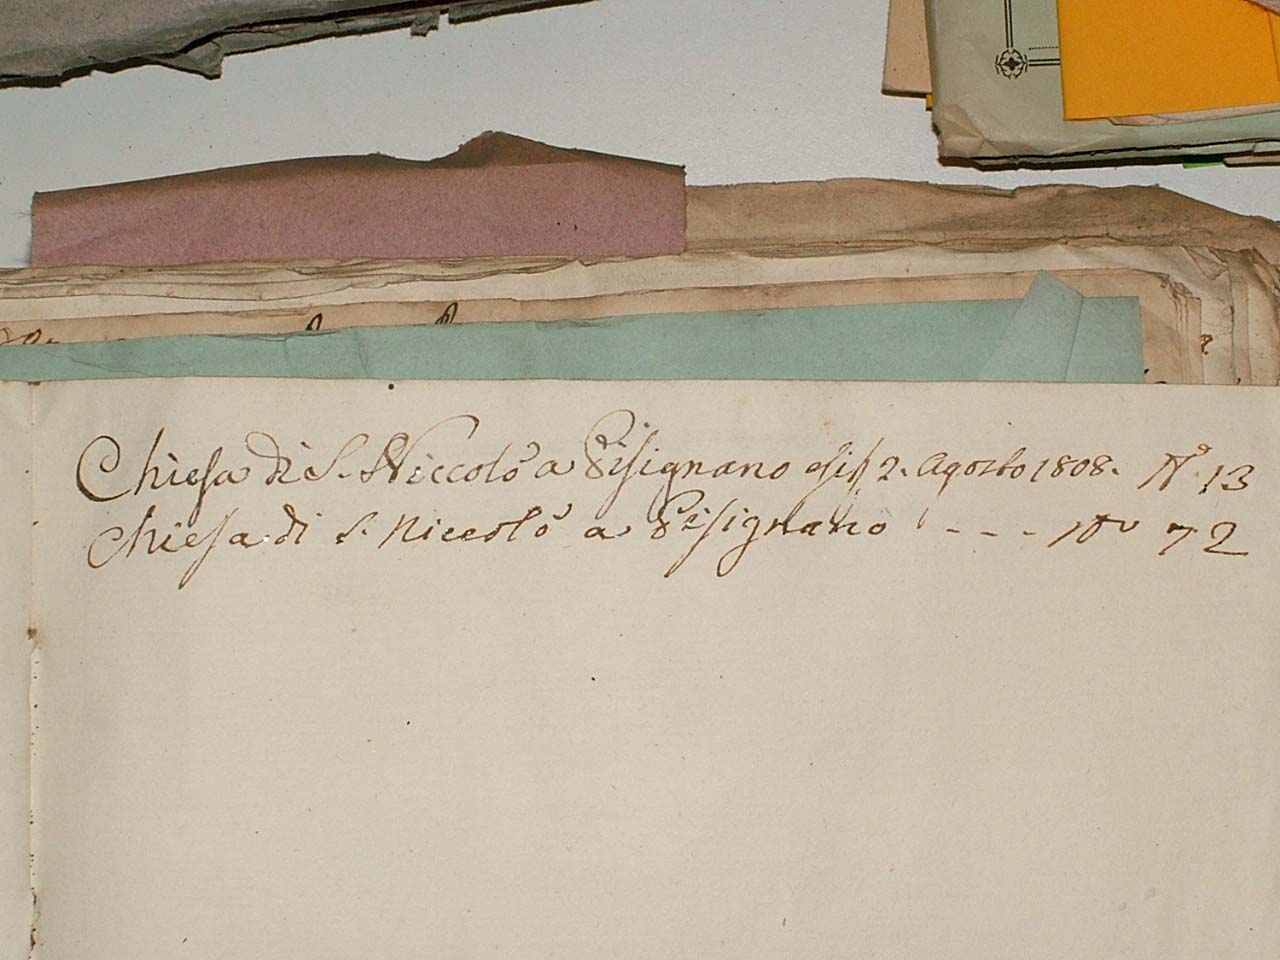 Chiesa di S. Niccolò a Pisignano 2. Agosto 1808. N.º 13
Chiesa di S. Niccolò a Pisignano - - - Nº 72